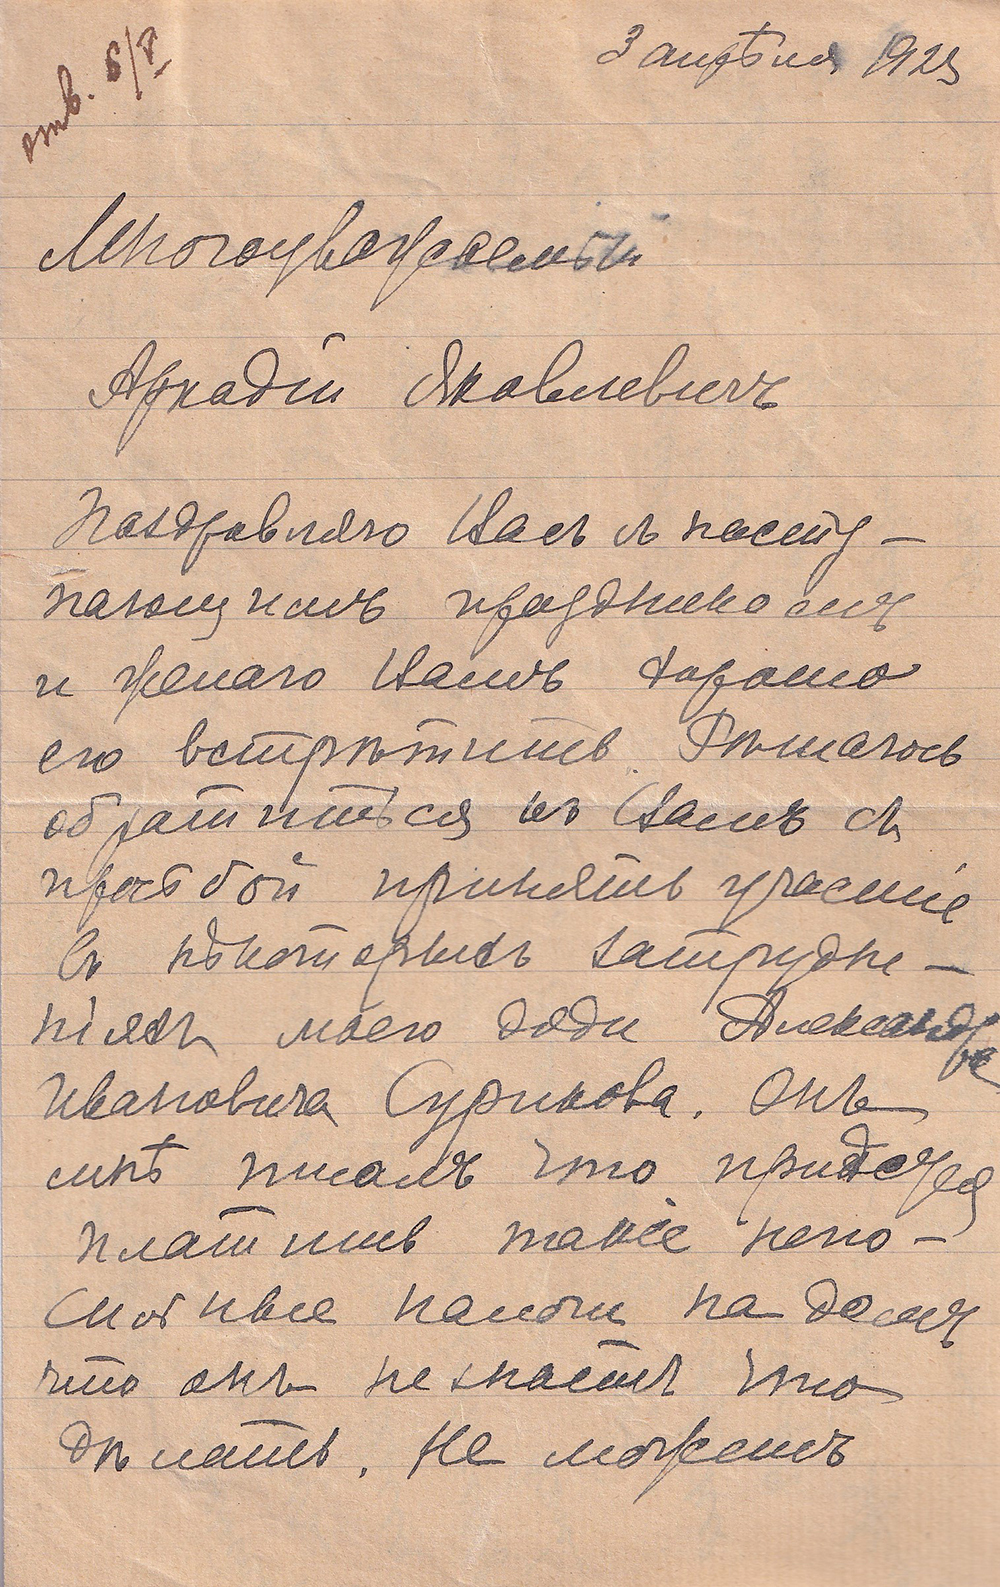 отв. 6/8
3 апрѣля 1923
Многоуважаемый
Аркадій Яковлевичъ
Поздравляю Васъ съ насту-
пающимъ праздникомъ
и желаю Вамъ хорошо
его встрѣтить. Рѣшаюсь
обратиться къ Вамъ съ
просьбой принять участіе
въ нѣкоторыхъ затрудне-
ніяхъ моего дяди Александра
Ивановича Сурикова. Онъ
мнѣ писалъ что придется
платить такіе непо-
сильные налоги на домъ
что онъ не знаетъ что
дѣлать. Не можетъ